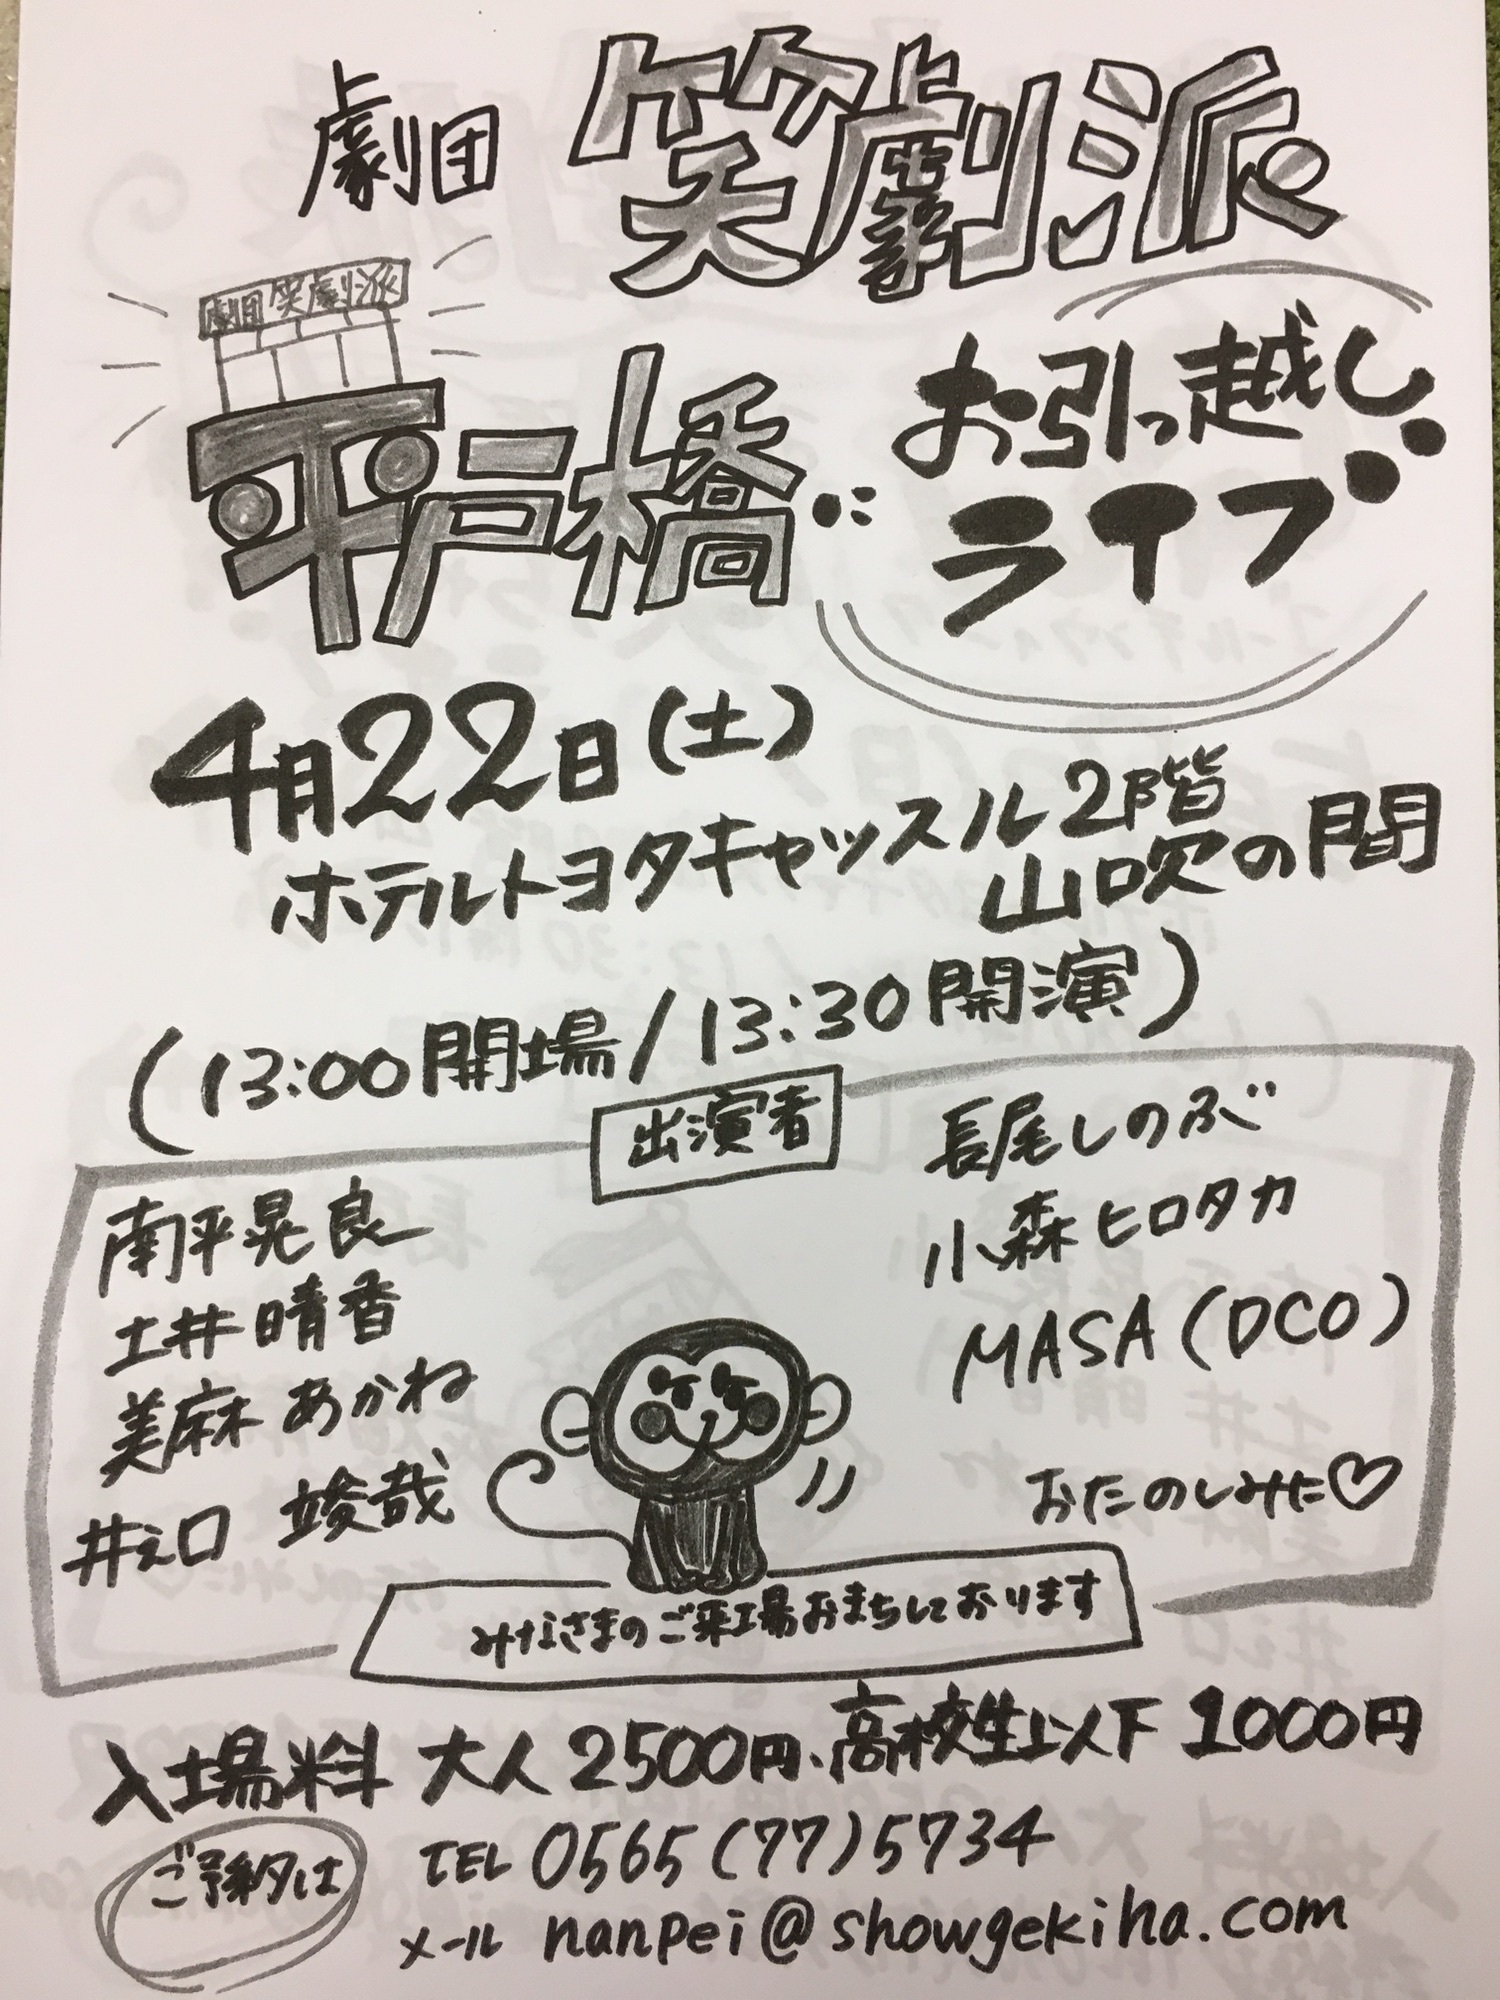 劇団 笑劇派
劇団笑劇派
平戸橋に
お引っ越し
ライブ
4月22日(土)
ホテルトヨタキャッスル2階
山吹の間
(13:00開場/13:30開演)
出演者
南平晃良
土井晴香
美麻あかね
井之口 竣哉
長尾しのぶ
小森ヒロタカ
MASA(DCO)
おたのしみに♡
みなさまのご来場おまちしております
入場料 大人2500円、高校生以下 1000円
ご予約は
TEL 0565(77)5734
メール nanpei@showgekiha.com